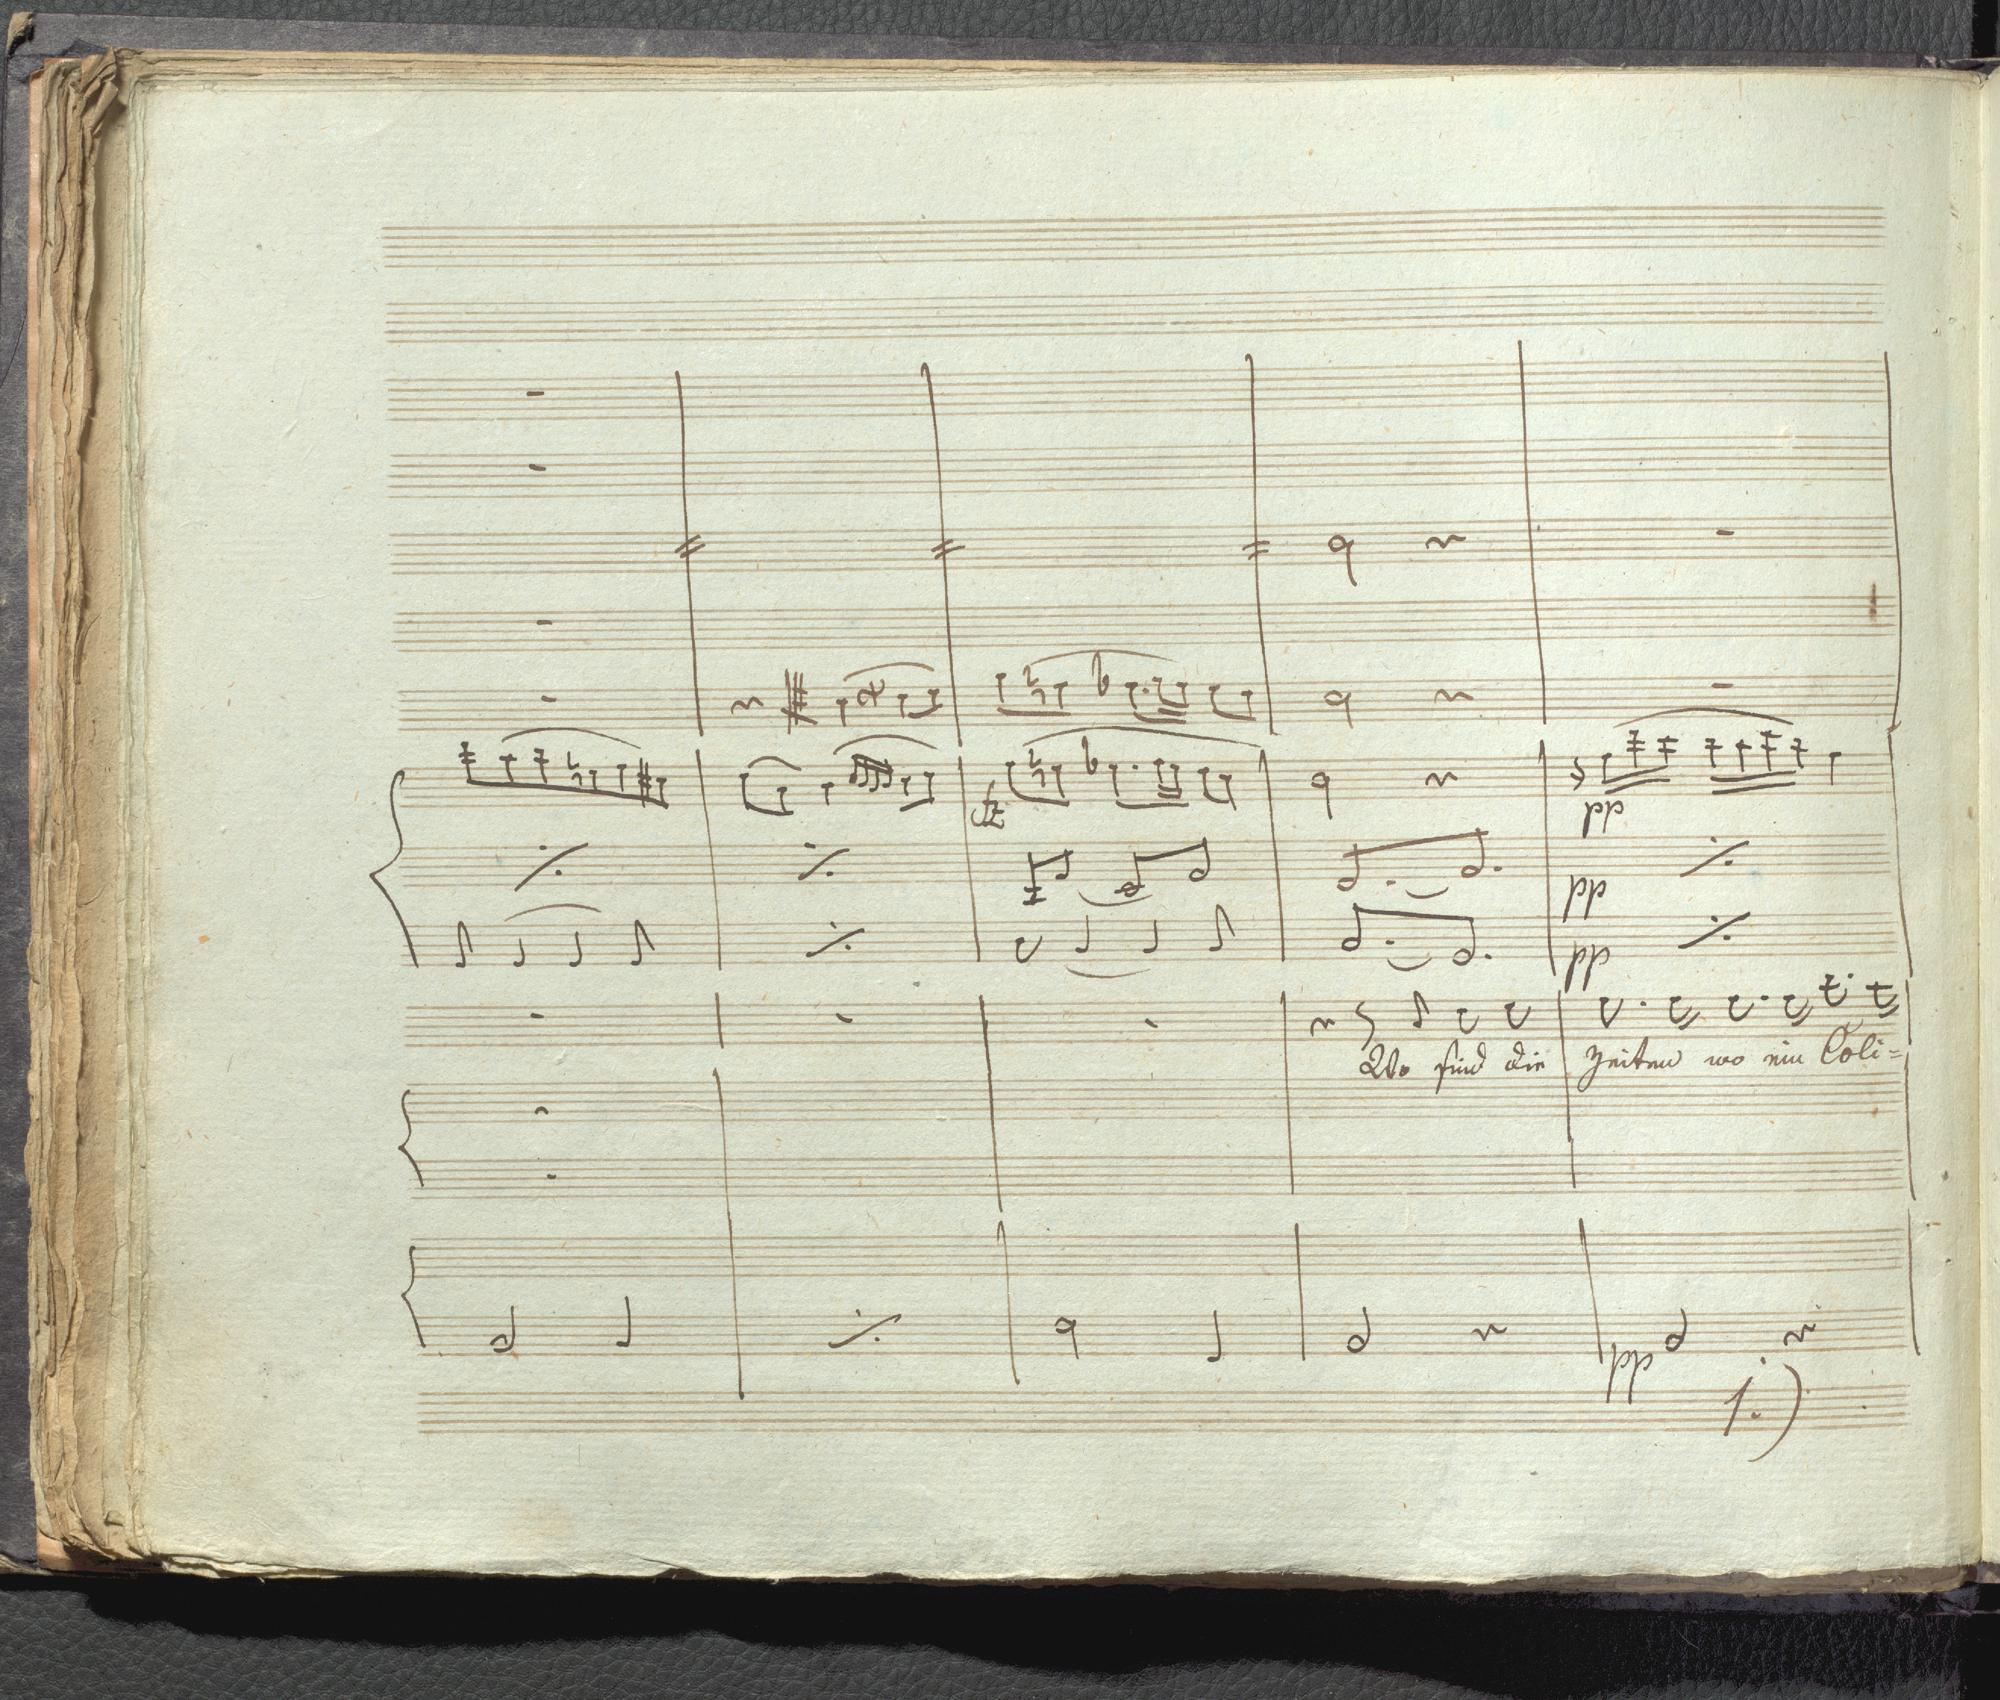 fz
pp
pp
pp
Wo sind die Zeiten wo ein Coli=
pp
1.)